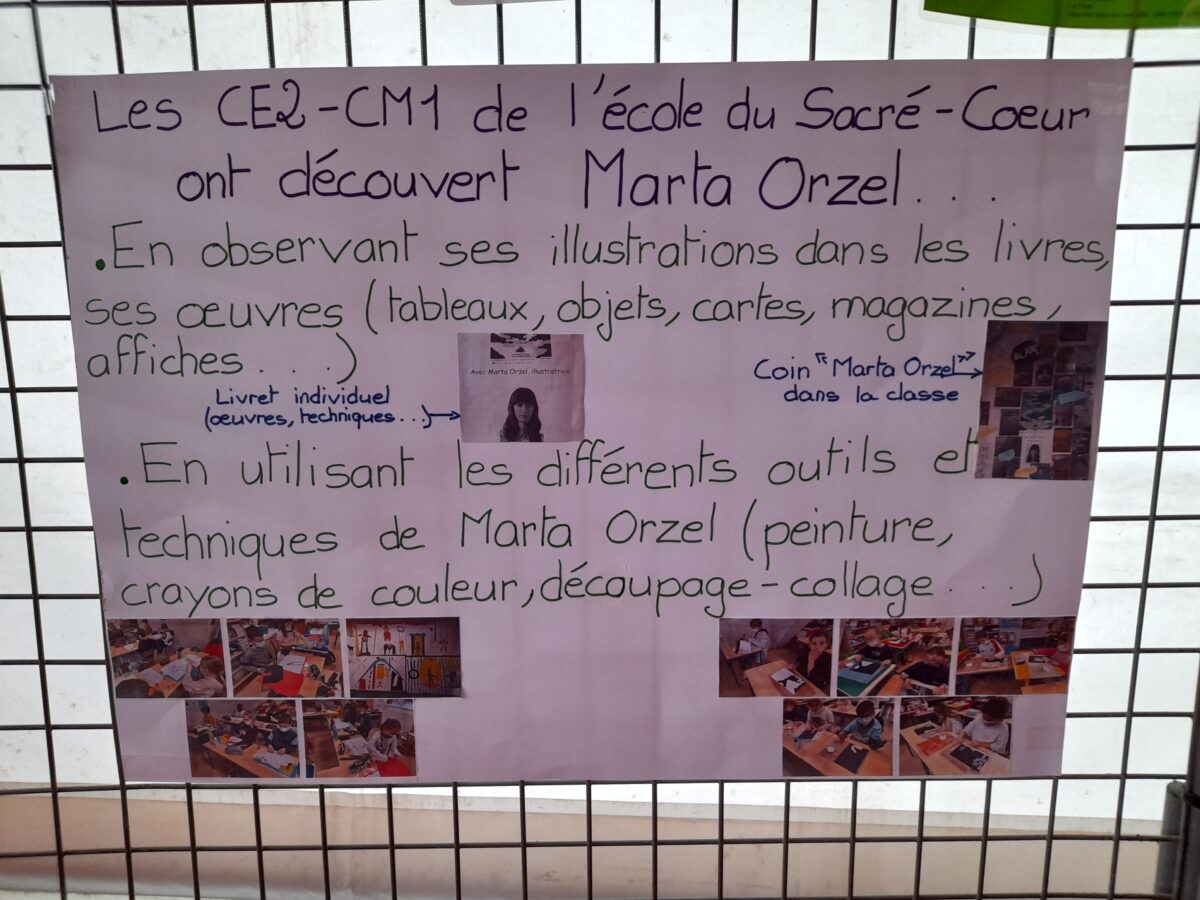 Les CE2-CM1 de l'école du Sacré-Coeur
ont découvert Marta Orzel...
.En observant ses illustrations dans les livres,
ses œuvres (tableaux, objets, cartes, magazines,
affiches...)
Avec Marta Orzel, illustratrice
Livret individuel
(œuvres, techniques...)
Coin "Marta Orzel"
dans la classe
.En utilisant les différents outils et
techniques de Marta Orzel (peinture,
crayons de couleur, découpage-collage...)